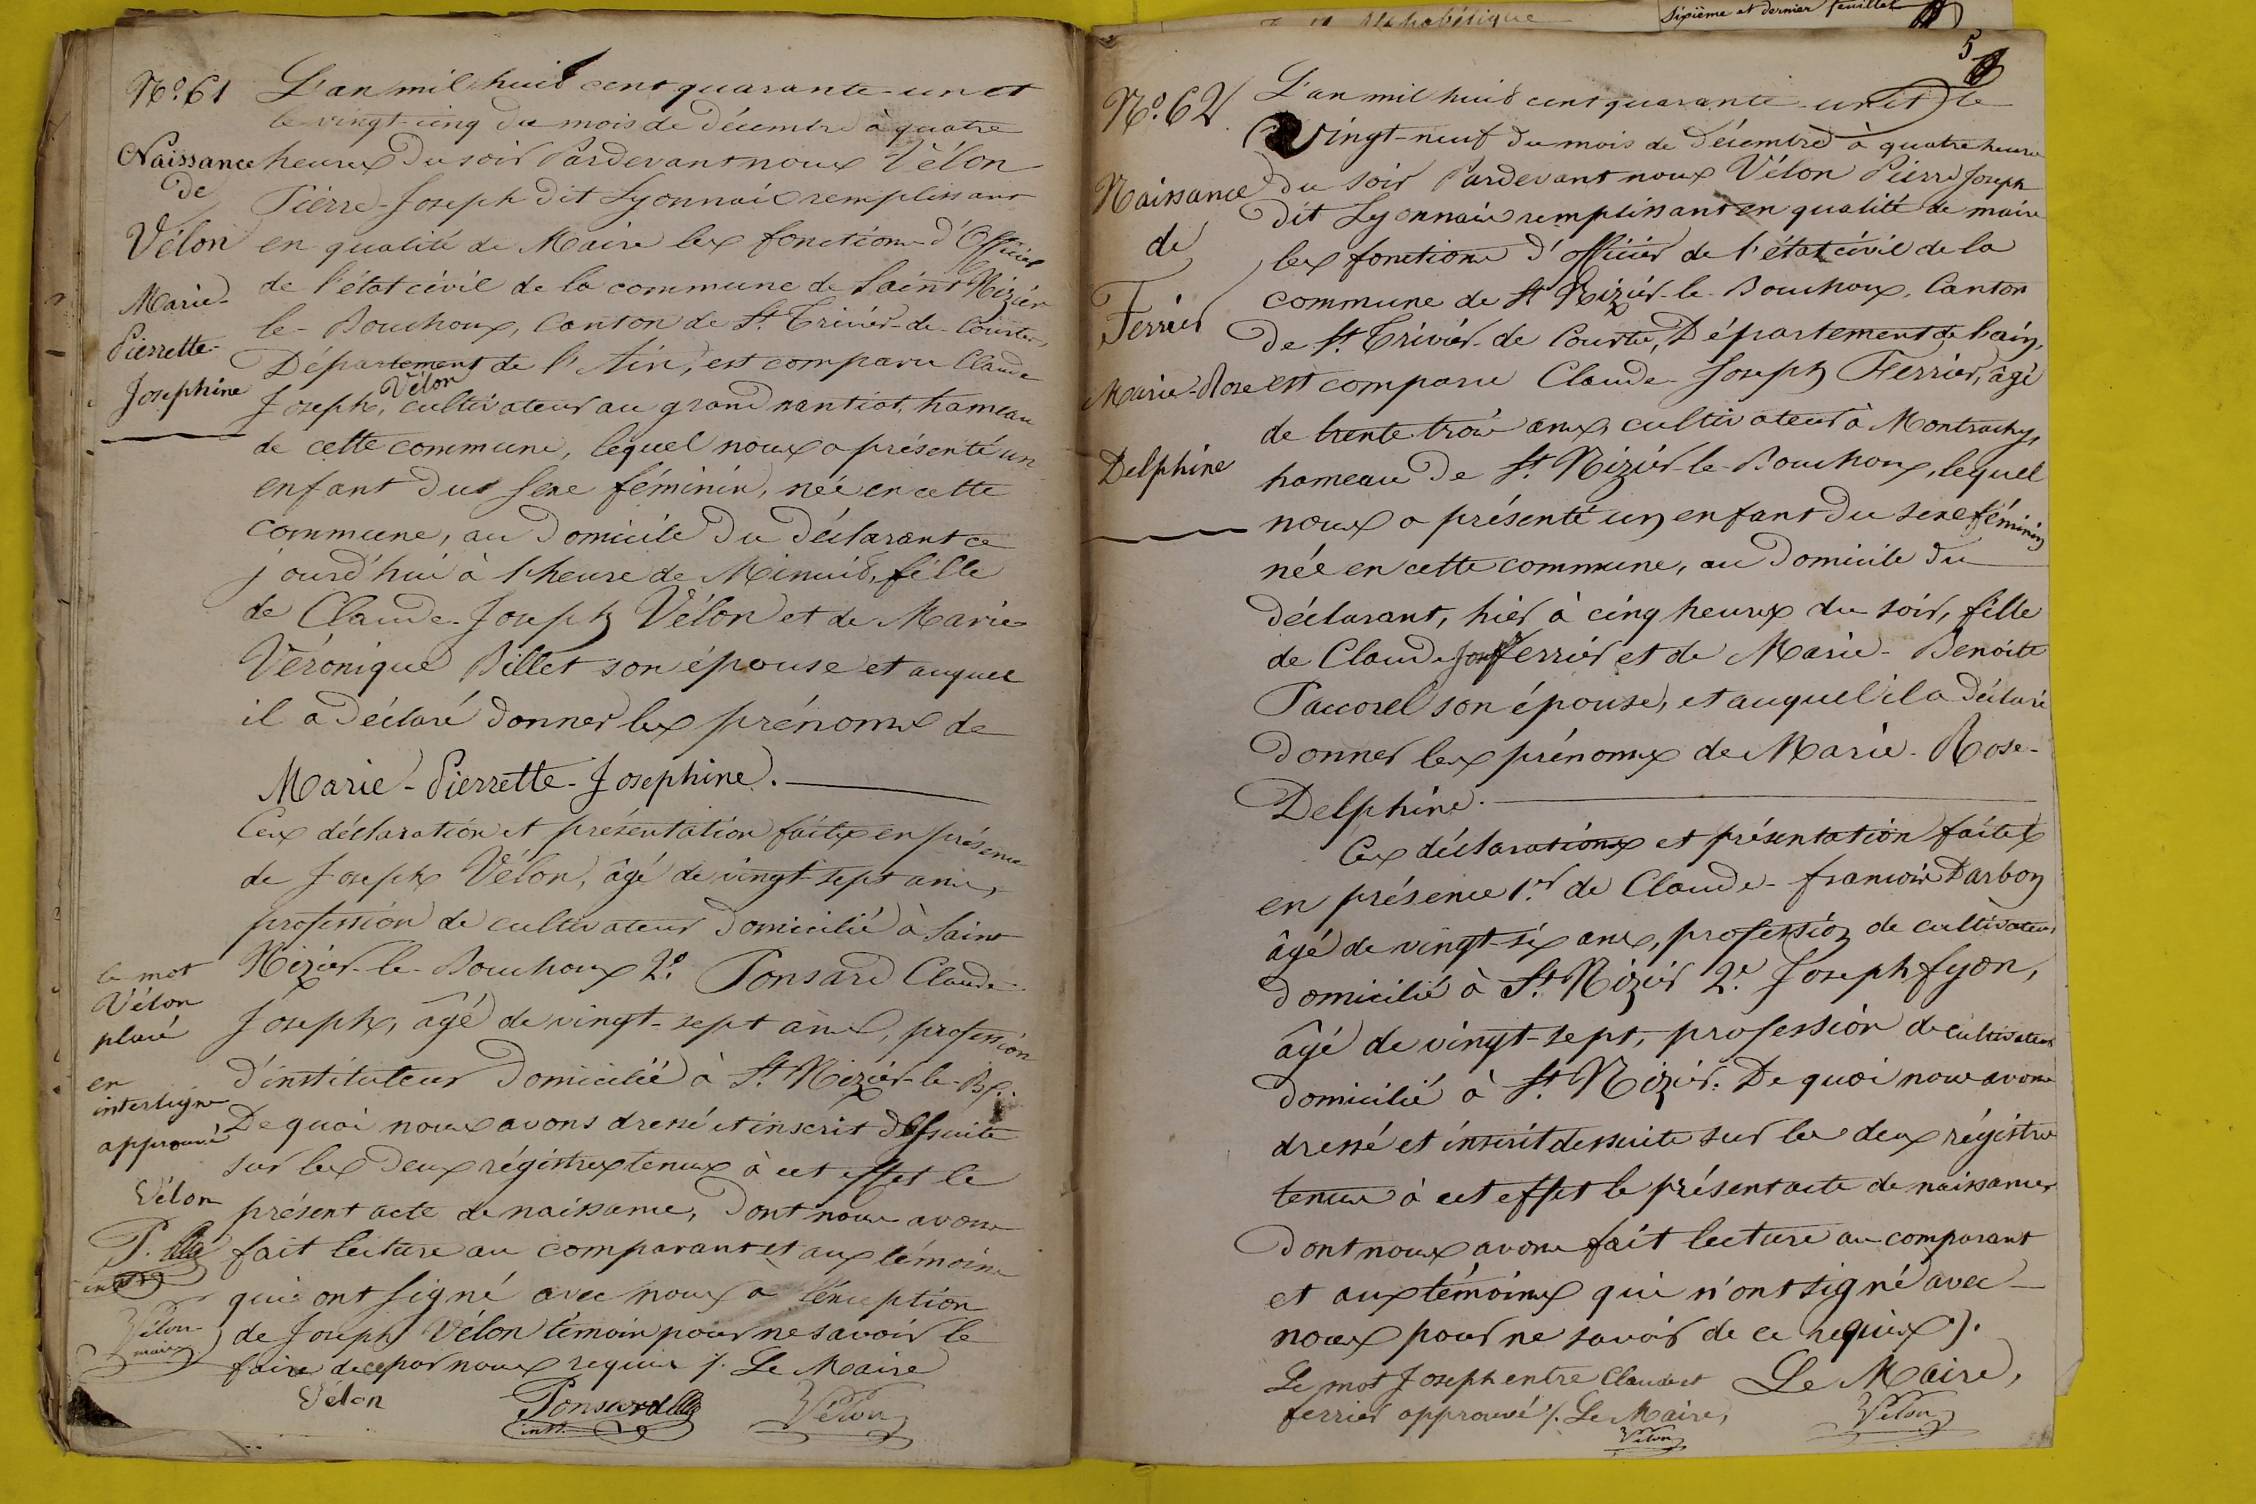 Alphabétique
Sixième et dernier feuillet
N.º 61
Naissance
de
Vélon
Marie-
Pierrette-
Josephine
L'an mil huit cent quarante-un et
le vingt-cinq du mois de décembre à quatre
heures du soir Pardevant nous Vélon
Pierre-Joseph dit Lyonnais remplissant
en qualité de Maire les fonctions d'Officier
de l'état civil de la commune de Saint Nizier
le-Bouchoux, Canton de St. Trivier-de-Courtes,
Département de l'Ain, est comparu Claude
Vélon
Joseph, cultivateur au grand nantiot, hameau
de cette commune, lequel nous a présenté un
enfant du sexe féminin, née en cette
commune, au domicile du déclarant ce
jourd'hui à l'heure de Minuit, fille
de Claude-Joseph Vélon et de Marie
Véronique Billet son épouse et auquel
il a déclaré donner les prénoms de
Marie-Pierrette-Josephine.
Ces déclaration et présentation faites en présence
de Joseph Vélon, âgé de vingt-sept ans,
profession de cultivateur domicilié à Saint
Nizier-le-Bouchoux 2.º Ponsard Claude-
Joseph, âgé de vingt-sept ans, profession
d'instituteur domicilié à St. Nizier-le-Bx.
De quoi nous avons dressé et inscrit desuite
sur les deux régistres tenus à cet effet le
présent acte de naissance, dont nous avons
fait lecture au comparant et aux témoins
qui ont signé avec nous a l'exception
de Joseph Vélon témoin pour ne savoir le
faire de ce par nous requis /. Le Maire
Vélon Ponsard Vélon
inst.
le mot
Vélon
placé
en
interligne
approuvé
Vélon
P.
inst.
Vélon
maire
5
N.º 62
Naissance
de
Ferrier
Marie-Rose
Delphine
L'an mil huit cent quarante-un et le
Vingt-neuf du mois de décembre à quatre heures
du soir Pardevant nous Vélon Pierre Joseph
dit Lyonnais remplissant en qualité de maire
les fonctions d'officier de l'état civil de la
commune de St. Nizier-le-Bouchoux, Canton
de St. Trivier-de Courtes, Département de l'ain,
est comparu Claude-Joseph Ferrier, âgé
de trente trois ans, cultivateur à Montrachy,
hameau de St. Nizier-le-Bouchoux, lequel
nous a présenté un enfant du sexe féminin
née en cette commune, au domicile du
déclarant, hier à cinq heures du soir, fille
de Claude Joseph ferrier et de Marie-Benoite
Paccorel son épouse, et auquel il a déclaré
donner les prénoms de Marie-Rose-
Delphine.
Ces déclarations et présentation faites
en présence 1.er de Claude-francois Darbon
âgé de vingt-six ans, profession de cultivateur
domicilié à St. Nizier 2.e Joseph fyon,
âgé de vingt-sept, profession de cultivateur
domicilié à St. Nizier. De quoi nous avons
dressé et inscrit desuite sur les deux régistres
tenus à cet effet le présent acte de naissance
dont nous avons fait lecture au comparant
et aux témoins qui n'ont signé avec
nous pour ne savoir de ce requis /.
Le mot Joseph entre Claude et Le Maire,
ferrier approuvé /. Le Maire, Vélon
Vélon